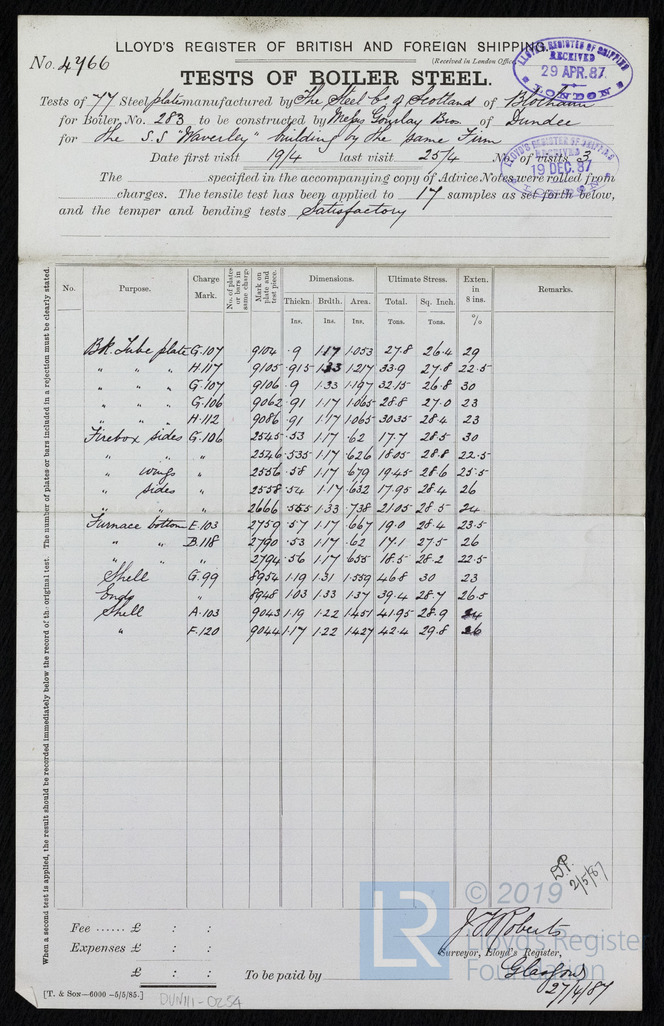 LLOYD'S REGISTER OF BRITISH AND FOREIGN SHIPPING.
No. 4766
(Received in London Office
LLOYD'S REGISTER OF SHIPPING
RECEIVED
29 APR. 87
LONDON
TESTS OF BOILER STEEL.
Tests of 77 Steel plates manufactured by The Steel Co of Scotland of
for Boiler, No. 283 to be constructed by Messrs Gourlay Bros. of Dundee
for the S.S "Waverley" building by the same Firm
LLOYD'S REGISTER OF SHIPPING
RECEIVED
19 DEC. 87
LONDON
Date first visit 19/4 last visit 25/4 No. of visits 3
The specified in the accompanying copy of Advice Notes were rolled from
charges. The tensile test has been applied to 17 samples as set forth below,
and the temper and bending tests Satisfactory
When a second test is applied, the result should be recorded immediately below the record of the original test. The number of plates or bars included in a rejection must be clearly stated.
No. Purpose. Charge Mark. No. of plates or bars in same charge. Mark on plate and test piece. Dimensions. Ultimate Stress. Exten. in 8 ins. Remarks.
Thickn. Brdth. Area. Total. Sq. Inch.
Ins. Ins. Ins. Tons. Tons. %
Bk. Tube plate G.107 9104 .9 1.17 1.053 27.8 26.4 29
" " " H.117 9105 .915 1.33 1.217 33.9 27.8 22.5
" " " G.107 9106 .9 1.33 1.197 32.15 26.8 30
" " " G.106 9062 .91 1.17 1.065 28.8 27.0 23
" " " H.112 9086 .91 1.17 1.065 30.35 28.4 23
Firebox sides G.106 2545 .53 1.17 .62 17.7 28.5 30
" " " 2546 .535 1.17 .626 18.05 28.8 22.5
" wings " 2556 .58 1.17 .679 19.45 28.6 25.5
" sides " 2558 .54 1.17 .632 17.95 28.4 26
" " " 2666 .555 1.33 .738 21.05 28.5 24
Furnace bottom E.103 2759 .57 1.17 .667 19.0 28.4 23.5
" " B.118 2790 .53 1.17 .62 17.1 27.5 26
" " " 2794 .56 1.17 .655 18.5 28.2 22.5
Shell G.99 8954 1.19 1.31 1.559 46.8 30 23
Ends " 8948 1.03 1.33 1.37 39.4 28.7 26.5
Shell A.103 9043 1.19 1.22 1.451 41.95 28.9 24
" F.120 9044 1.17 1.22 1.427 42.4 29.8 26
D.P.
2/5/87
© 2019
LR
Lloyd's Register
Foundation
Fee ...... £ : :
Expenses £ : :
£ : :
To be paid by
J. F. Roberts
Surveyor, Lloyd's Register,
Glasgow
27/4/87
[T. & SON—6000 -5/5/85.]
DUN111-0254